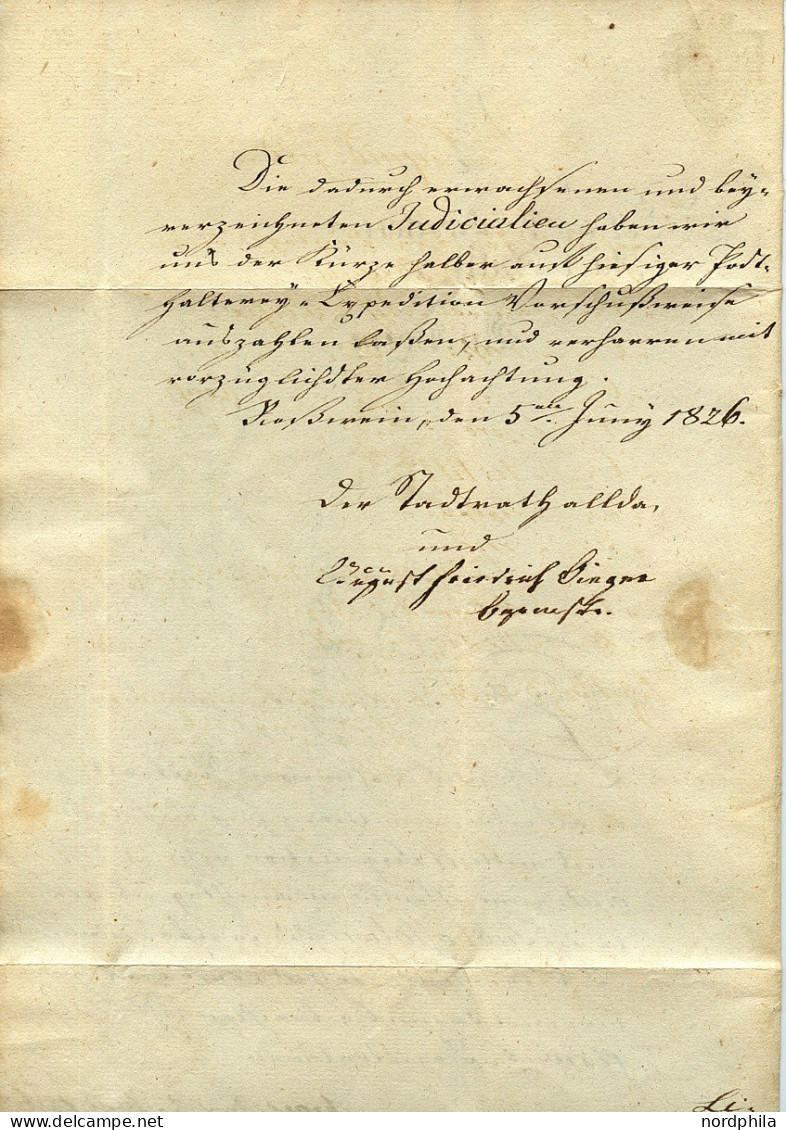 Die dadurch erwachsenen und bey-
verzeichneten Judicialien haben wir
uns der Kürze halber aus hiesiger Post-
halterey-Expedition Vorschußweise
auszahlen laßen, und verharren mit
vorzüglichster Hochachtung.
Roßwein, den 5ten Juny 1826.
Der Stadtrath allda,
und
August Friedrich
Li-
nordphila